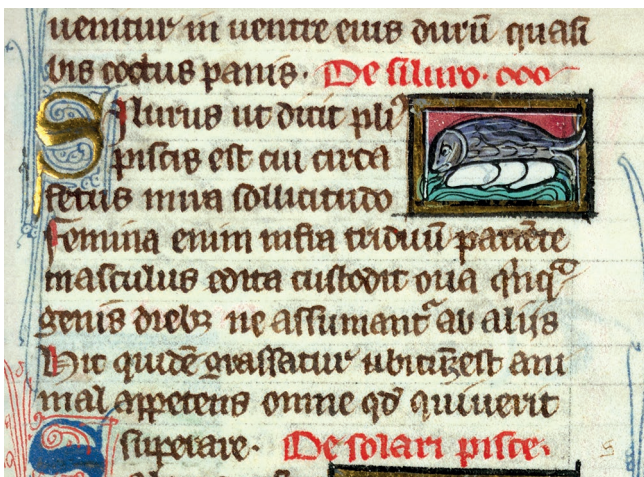 uenitur in uentre eius durū quasi
bis coctus panis. De siluro. ooo
Silurus ut dicit pli᷒
piscis est cui circa
fetus mira sollicitudo
Femina enim infra triduū pariēte
masculus edita custodit oua
genis diebꝫ ne assumant᷑ ab alijs
Hic quidē grassatur ubicūqꝫ est ani
mal appetens omne qd̄ quiuerit
superare. De solari pisce.